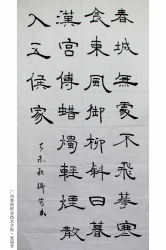 春城無處不飛華寒
食東風御柳斜日暮
漢宮傳蜡燭輕煙散
入五侯家